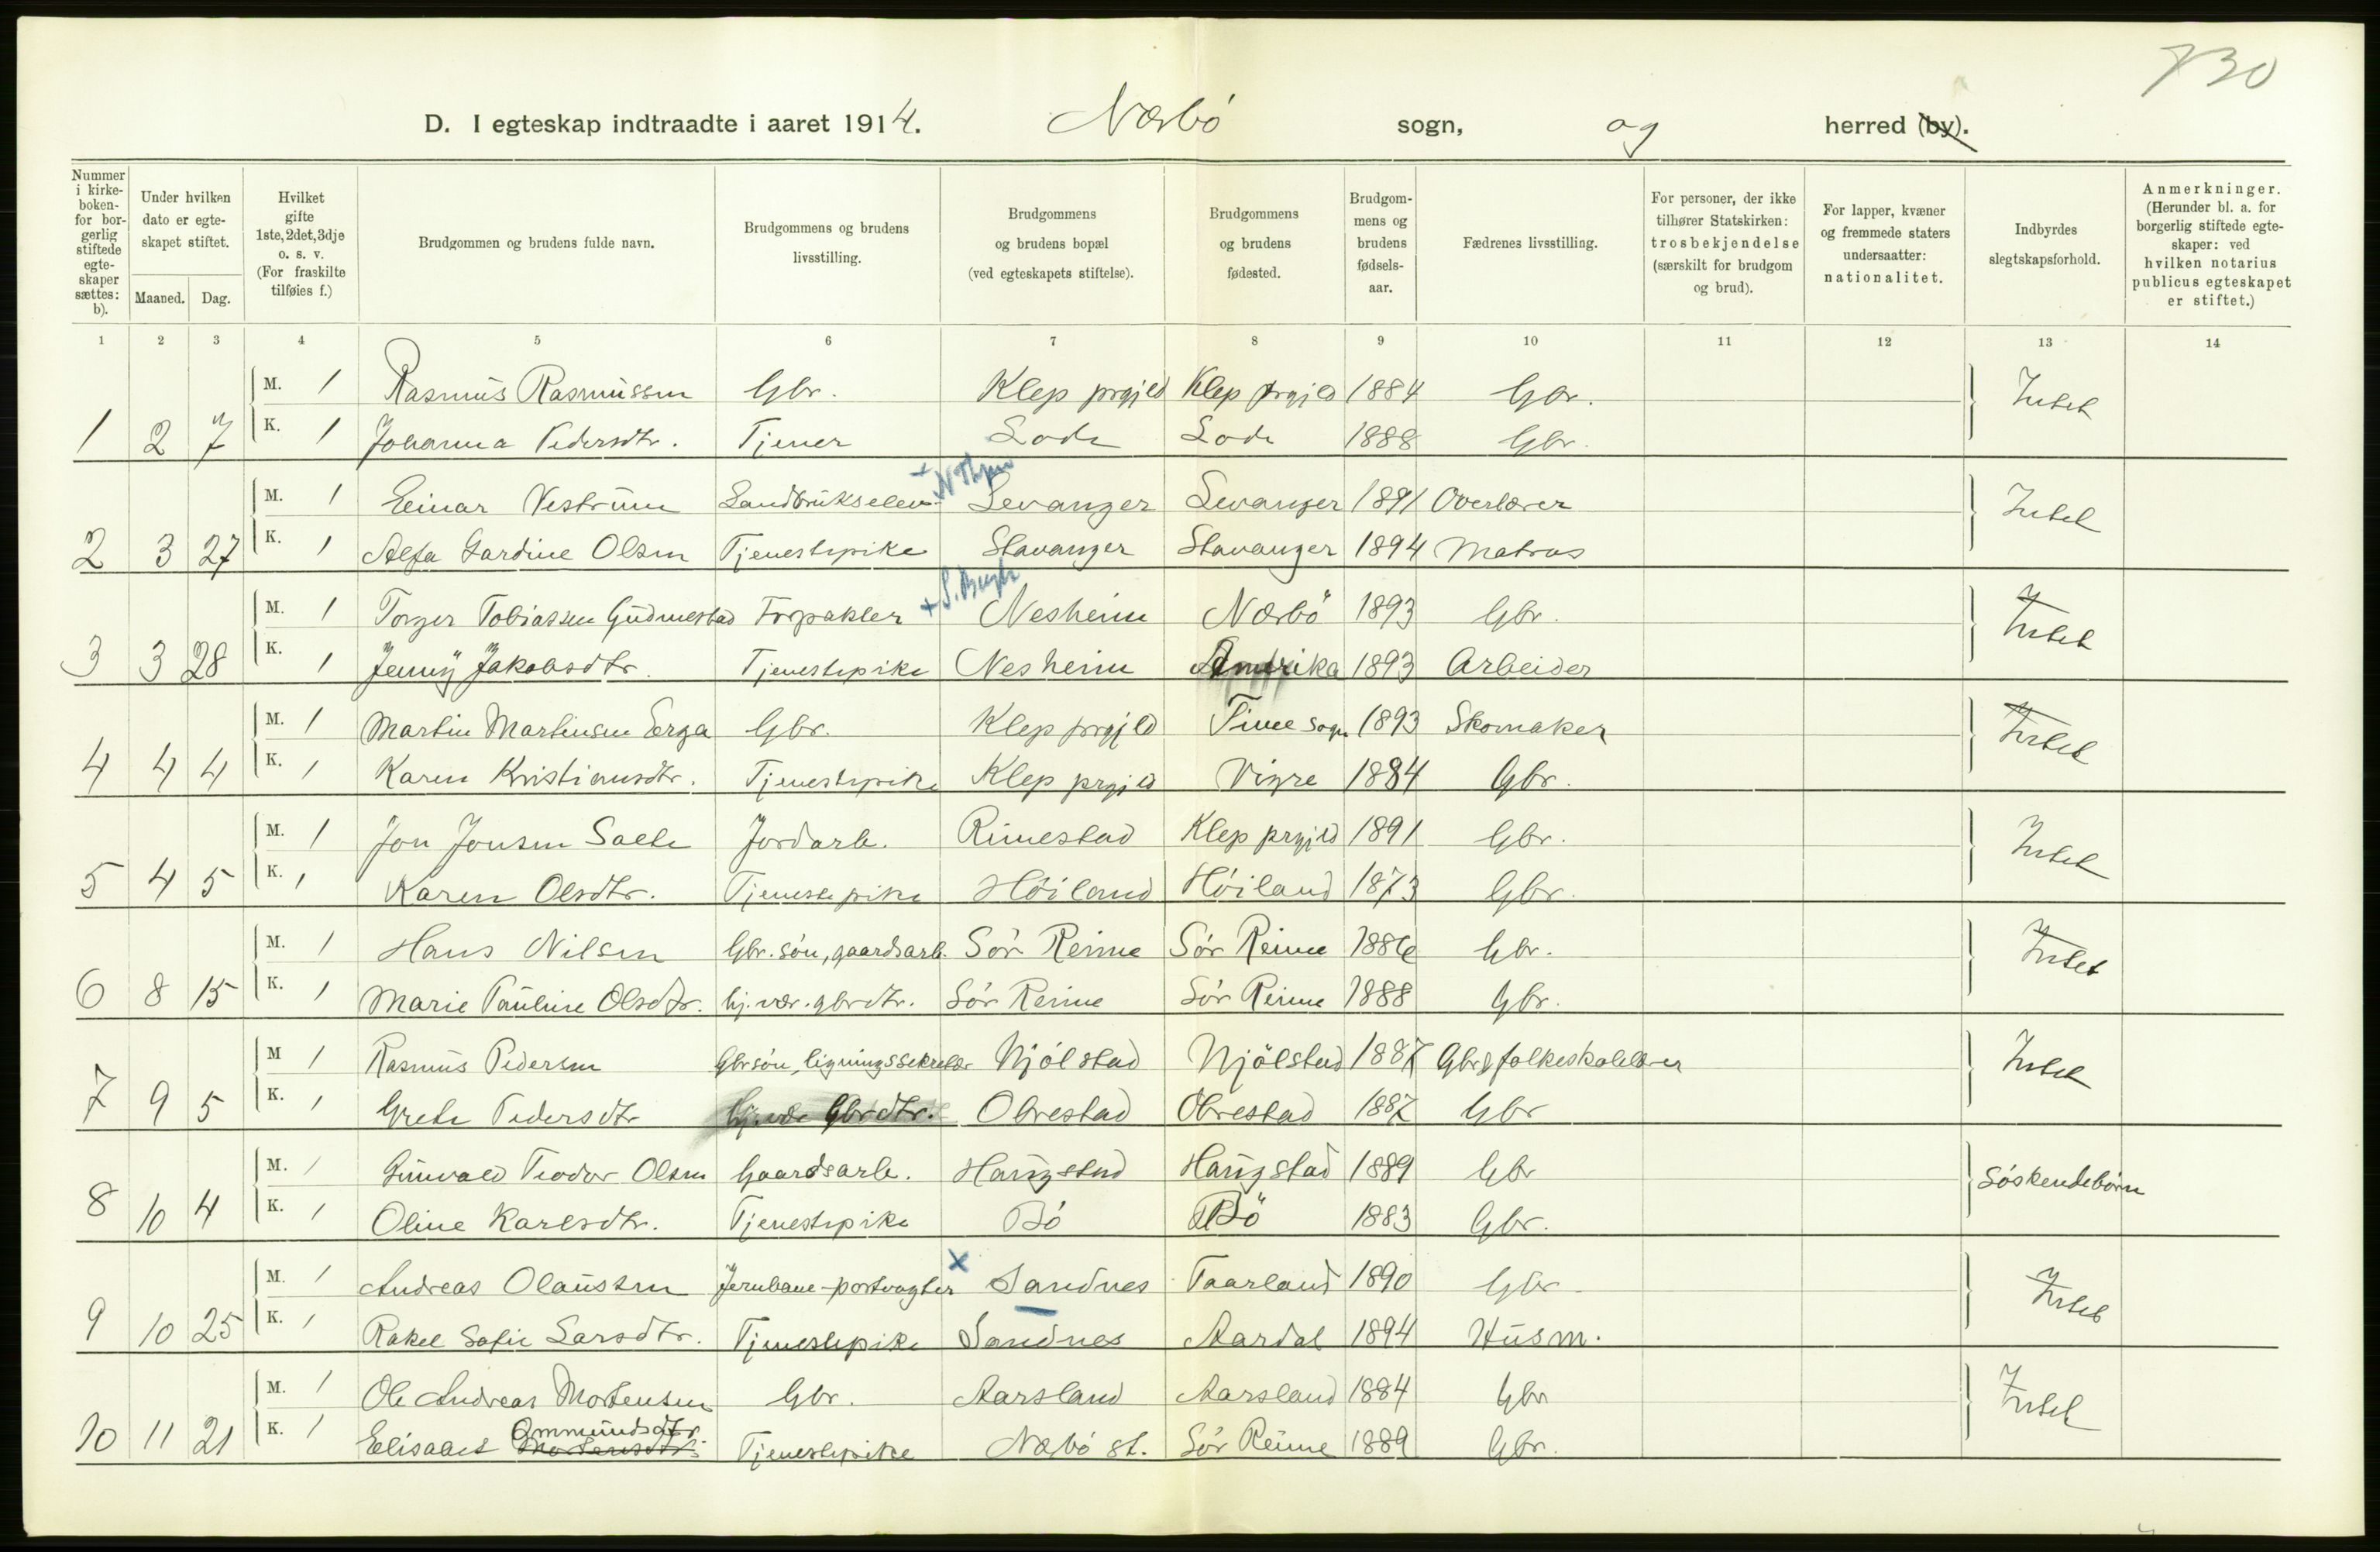 730
D. I egteskap indtraadte i aaret 1914. Nærbö sogn, og herred (by).
Nummer i kirke-boken- for bor-gerlig stiftede egte-skaper sættes: b). Under hvilken dato er egte-skapet stiftet. Maaned. Dag. Hvilket gifte 1ste, 2det, 3dje o. s. v. (For fraskilte tilføies f.) Brudgommen og brudens fulde navn. Brudgommens og brudens livsstilling. Brudgommens og brudens bopæl (ved egteskapets stiftelse). Brudgommens og brudens fødested. Brudgom-mens og brudens fødsels-aar. Fædrenes livsstilling. For personer, der ikke tilhører Statskirken: trosbekjendelse (særskilt for brudgom og brud). For lapper, kvæner og fremmede staters undersaatter: nationalitet. Indbyrdes slegtskapsforhold. Anmerkninger. (Herunder bl. a. for borgerlig stiftede egte-skaper: ved hvilken notarius publicus egteskapet er stiftet.)
1 2 3 4 5 6 7 8 9 10 11 12 13 14
M. 1 Rasmus Rasmussen Gbr. Klep prgjld Klep prgjld 1884 Gbr. Intet
1 2 7 K. 1 Johanna Pedersdtr. Tjener Lode Lode 1888 Gbr.
M. 1 Einar Vestrum Landbrukselev + Levanger Levanger 1891 Overlærer Intet
2 3 27 K. 1 Alfa Gardine Olsen Tjenestepike Stavanger Stavanger 1894 Matros
M. 1 Torger Tobiassen Gudmestad Forpakter + Nesheim Nærbö 1893 Gbr. Intet
3 3 28 K. 1 Jenny Jakobsdtr. Tjenestepike Nesheim Amerika 1893 Arbeider
M. 1 Martin Martinsen Erga Gbr. Klep prgjld Time sogn 1893 Skomaker Intet
4 4 4 K. 1 Karen Kristiansdtr. Tjenestepike Klep prgjld Vigre 1884 Gbr.
M. 1 Jon Jonsen Saele Jordarb. Rimestad Klep prgjld 1891 Gbr. Intet
5 4 5 K. 1 Karen Olsdtr. Tjenestepike Höiland Höiland 1873 Gbr.
M. 1 Hans Nilsen Gbr. sön, gaardsarb. Sör Reime Sör Reime 1886 Gbr. Intet
6 8 15 K. 1 Marie Pauline Olsdtr. hj. vær. gbrdtr. Sör Reime Sör Reime 1888 Gbr.
M 1 Rasmus Pedersen Gbrsön, ligningssekretær Njölstad Njölstad 1887 Gbr & folkeskolelærer Intet
7 9 5 K. 1 Grete Pedersdtr Gbrdtr. Obrestad Obrestad 1887 Gbr
M. 1 Gunvald Teodor Olsen Gaardsarb. Haugstad Haugstad 1889 Gbr Söskendebörn
8 10 4 K. 1 Oline Karlsdtr. Tjenestepike Bö Bö 1883 Gbr.
M. 1 Andreas Olaussen Jernbane-portvagter x Sandnes Taarland 1890 Gbr Intet
9 10 25 K. 1 Rakel Sofie Larsdtr. Tjenestepike Sandnes Aardal 1894 Husm.
M. 1 Ole Andreas Mortensen Gbr. Aarsland Aarsland 1884 Gbr Intet
10 11 21 K. 1 Elisabet Mortensdtr. Ommundsdtr. Tjenestepike Nærbö st. Sör Reime 1889 Gbr.